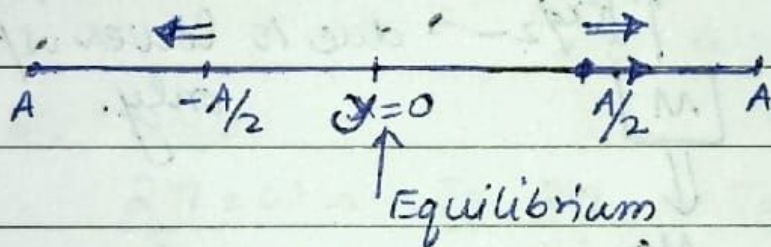 A -A/2 x=0 A/2 A
Equilibrium